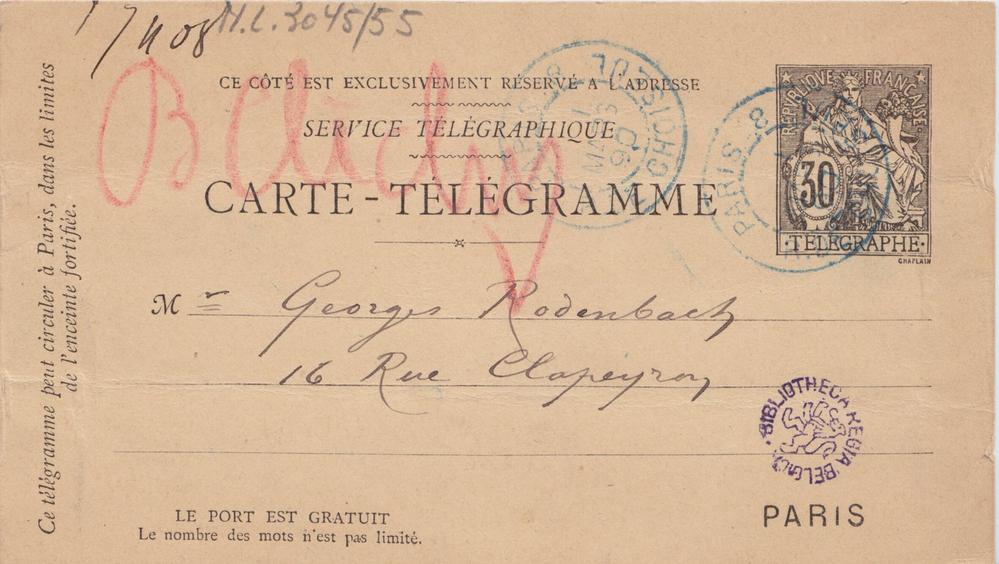 17408
M.L. 3045/55
CE CÔTÉ EST EXCLUSIVEMENT RÉSERVÉ A L'ADRESSE
SERVICE TÉLÉGRAPHIQUE
CARTE-TÉLÉGRAMME
RÉPUBLIQUE FRANÇAISE
30
TÉLÉGRAPHE
CHAPLAIN
PARIS 8
PARIS 8
Ce télégramme peut circuler à Paris, dans les limites
de l'enceinte fortifiée.
Mr Georges Rodenbach
16 Rue Clapeyron
BIBLIOTHECA REGIA BELGICA
PARIS
LE PORT EST GRATUIT
Le nombre des mots n'est pas limité.